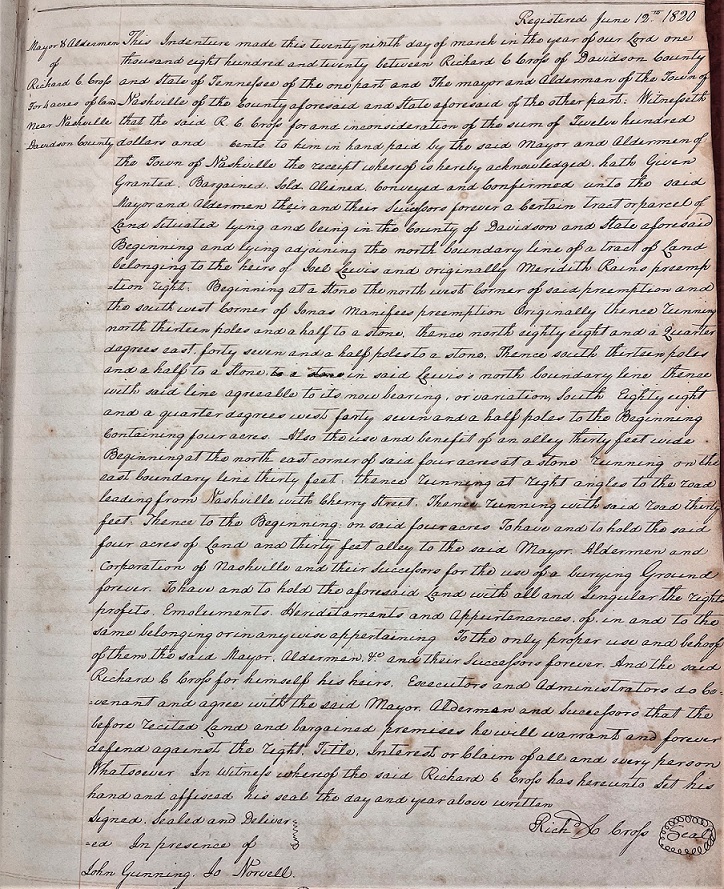 Registered June 12th 1820
Mayor & Aldermen
of
Richard C Cross
For 4 acres of Lan
Near Nashville
Davidson County
This Indenture made this twenty ninth day of march in the year of our Lord one
thousand eight hundred and twenty between Richard C Cross of Davidson County
and State of Tennessee of the one part and The mayor and Alderman of the Town of
Nashville of the County aforesaid and State aforesaid of the other part; Witnesseth
that the said R C Cross for and inconsideration of the sum of Twelve hundred
dollars and cents to him in hand paid by the said Mayor and Aldermen of
the Town of Nashville the receipt whereof is hereby acknowledged. hath Given
Granted. Bargained. Sold. Aliened. Conveyed and Confirmed unto the said
Mayor and Aldermen their and their Successors forever a Certain tract or parcel of
Land Situated lying and being in the County of Davidson and State aforesaid
Beginning and lying adjoining the north boundary line of a tract of Land
belonging to the heirs of Joel Lewis and originally Meredith Rains preemp
-tion right. Beginning at a Stone the north west Corner of said preemption and
the south west Corner of Jonas Manifees preemption Originally thence running
north thirteen poles and a half to a stone. thence north eighty eight and a Quarter
degrees east. forty seven and a half poles to a stone. Thence south thirteen poles
and a half to a stone to a stone in said Lewis's north boundary line thence
with said line agreable to its now bearing. or variation, South Eighty eight
and a quarter degrees west forty seven and a half poles to the Beginning
Containing four acres Also the use and benefit of an alley thirty feet wide
Beginning at the north east corner of said four acres at a stone running on the
east boundary line thirty feet. thence running at right angles to the road
leading from Nashville with Cherry Street. Thence running with said road thirty
feet. Thence to the Beginning on said four acres To have and to hold the said
four acres of Land and thirty feet alley to the said Mayor. Aldermen and
Corporation of Nashville and their Successors for the use of a burying Ground
forever. To have and to hold the aforesaid Land with all and singular the rights
profits. Emoluments. Hereditaments and Appurtenances. of. in and to the
same belonging or in any wise appertaining To the only proper use and behoof
of them the said Mayor. Aldermen. &c and their Successors forever. And the said
Richard C Cross for himself his heirs. Executors and Administrators do Co-
-venant and agree with the said Mayor. Aldermen and Successors that the
before recited Land and bargained premises he will warrant and forever
defend against the right. Title. Interest or Claim of all and every person
Whatsoever In Witness whereof the said Richard C Cross has hereunto Set his
hand and affixed his seal the day and year above written
Signed. Sealed and Deliver
-ed In presence of
Richd C Cross Seal
John Gunning. Jo Norvell.